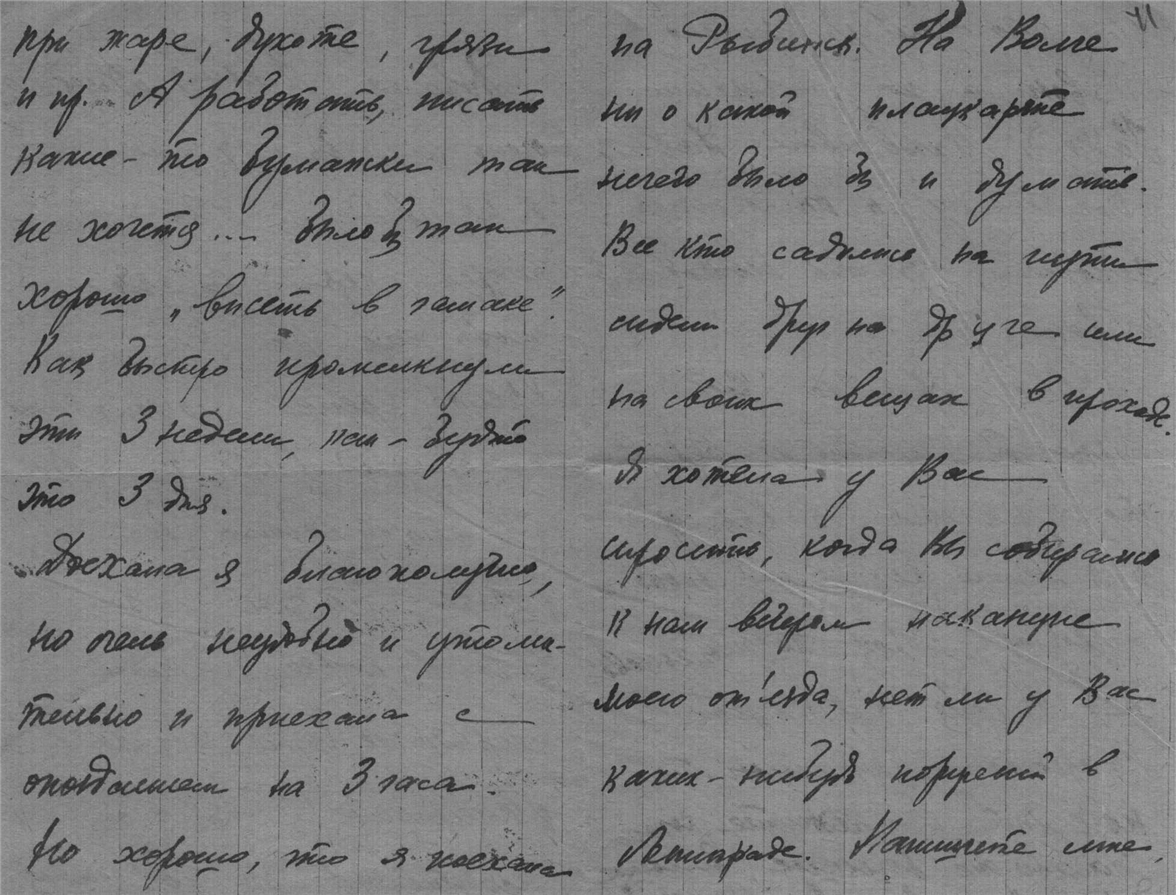 при жаре, духоте, грязи
и пр. А работать, писать
какие-то бумажки так
не хочется... Было бы так
хорошо „висеть в гамаке".
Как быстро промелькнули
эти 3 недели, как-будто
это 3 дня.
Доехала я благополучно,
но очень неудобно и утоми-
тельно и приехала с
опозданием на 3 часа.
Но хорошо, что я поехала
11
на Рыбинск. На Волге
ни о какой плацкарте
нечего было бы и думать.
Все кто садились на пути
сидели друг на друге или
на своих вещах в проходе.
Я хотела у Вас
спросить, когда Вы собирались
к нам вечером накануне
моего от'езда, нет ли у Вас
каких-нибудь поручений в
Ленинграде. Напишите мне,